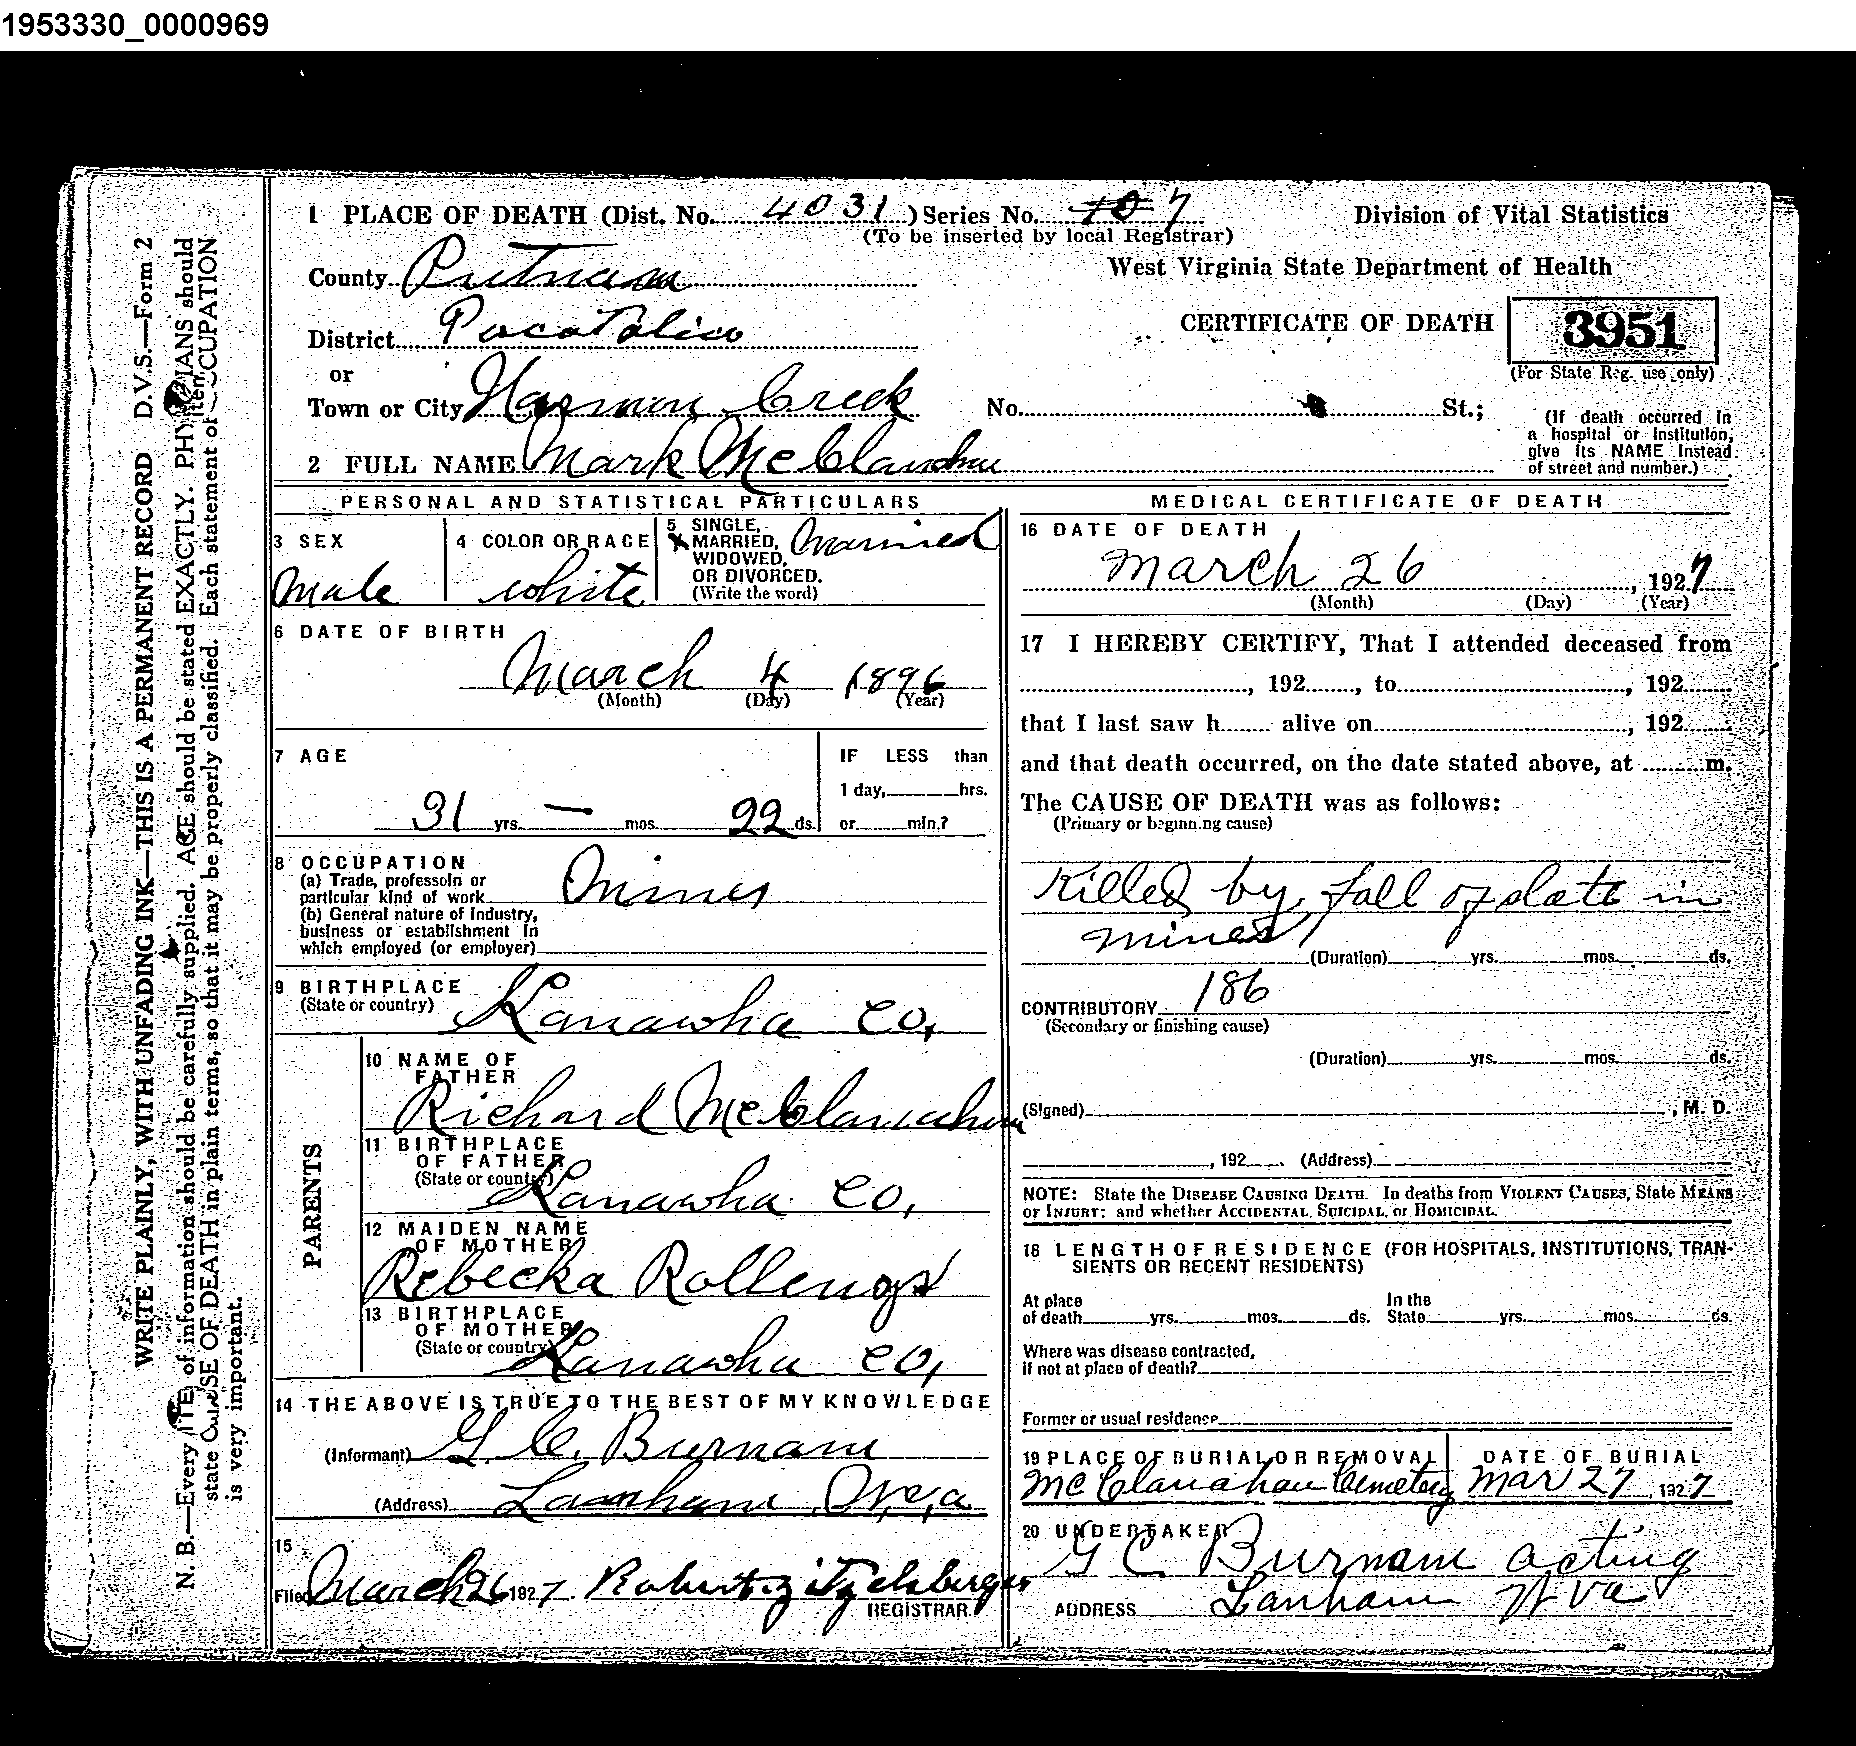 1953330_0000969
WRITE PLAINLY, WITH UNFADING INK—THIS IS A PERMANENT RECORD D.V.S.—Form 2
N. B.—Every ITEM of information should be carefully supplied. AGE should be stated EXACTLY. PHYSICIANS should
state CAUSE OF DEATH in plain terms, so that it may be properly classified. Each statement of OCCUPATION
is very important.
1 PLACE OF DEATH (Dist. No. 4031) Series No. 7
(To be inserted by local Registrar)
Division of Vital Statistics
West Virginia State Department of Health
County Putnam
CERTIFICATE OF DEATH 3951
(For State Reg. use only)
District Pocatalico
or
Town or City Harmon Creek No. St.;
(If death occurred in
a hospital or institution,
give its NAME instead
of street and number.)
2 FULL NAME Mark McClanahan
PERSONAL AND STATISTICAL PARTICULARS
3 SEX
Male
4 COLOR OR RACE
white
5 SINGLE,
MARRIED,
WIDOWED,
OR DIVORCED.
(Write the word)
Married
6 DATE OF BIRTH
March 4 1896
(Month) (Day) (Year)
7 AGE
31 yrs. — mos. 22 ds.
IF LESS than
1 day, hrs.
or min.?
8 OCCUPATION
(a) Trade, professoin or
particular kind of work Miner
(b) General nature of industry,
business or establishment in
which employed (or employer)
9 BIRTHPLACE
(State or country) Kanawha Co,
PARENTS
10 NAME OF
FATHER
Richard McClanahan
11 BIRTHPLACE
OF FATHER
(State or country)
Kanawha Co,
12 MAIDEN NAME
OF MOTHER
Rebecka Rollengs
13 BIRTHPLACE
OF MOTHER
(State or country)
Kanawha Co,
14 THE ABOVE IS TRUE TO THE BEST OF MY KNOWLEDGE
(Informant) G. C. Burnam
(Address) Lanham W.Va
15
Filed March 26 1927 Robert
REGISTRAR
MEDICAL CERTIFICATE OF DEATH
16 DATE OF DEATH
March 26, 1927
(Month) (Day) (Year)
17 I HEREBY CERTIFY, That I attended deceased from
, 192 , to , 192
that I last saw h alive on , 192
and that death occurred, on the date stated above, at m.
The CAUSE OF DEATH was as follows:
(Primary or beginning cause)
Killed by fall of slate in
mines
(Duration) yrs. mos. ds.
CONTRIBUTORY 186
(Secondary or finishing cause)
(Duration) yrs. mos. ds.
(Signed) , M. D.
, 192 . (Address)
NOTE: State the DISEASE CAUSING DEATH. In deaths from VIOLENT CAUSES, State MEANS
OF INJURY; and whether ACCIDENTAL, SUICIDAL, or HOMICIDAL.
18 LENGTH OF RESIDENCE (FOR HOSPITALS, INSTITUTIONS, TRAN-
SIENTS OR RECENT RESIDENTS)
At place
of death yrs. mos. ds.
In the
State yrs. mos. ds.
Where was disease contracted,
if not at place of death?
Former or usual residence
19 PLACE OF BURIAL OR REMOVAL
McClanahan Cemetery
DATE OF BURIAL
Mar 27 1927
20 UNDERTAKER
G C Burnam acting
ADDRESS Lanham W Va